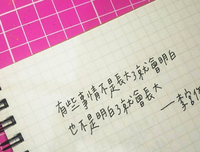 有些事情不是長大了就會明白
也不是明白了就會長大
──李宮俊